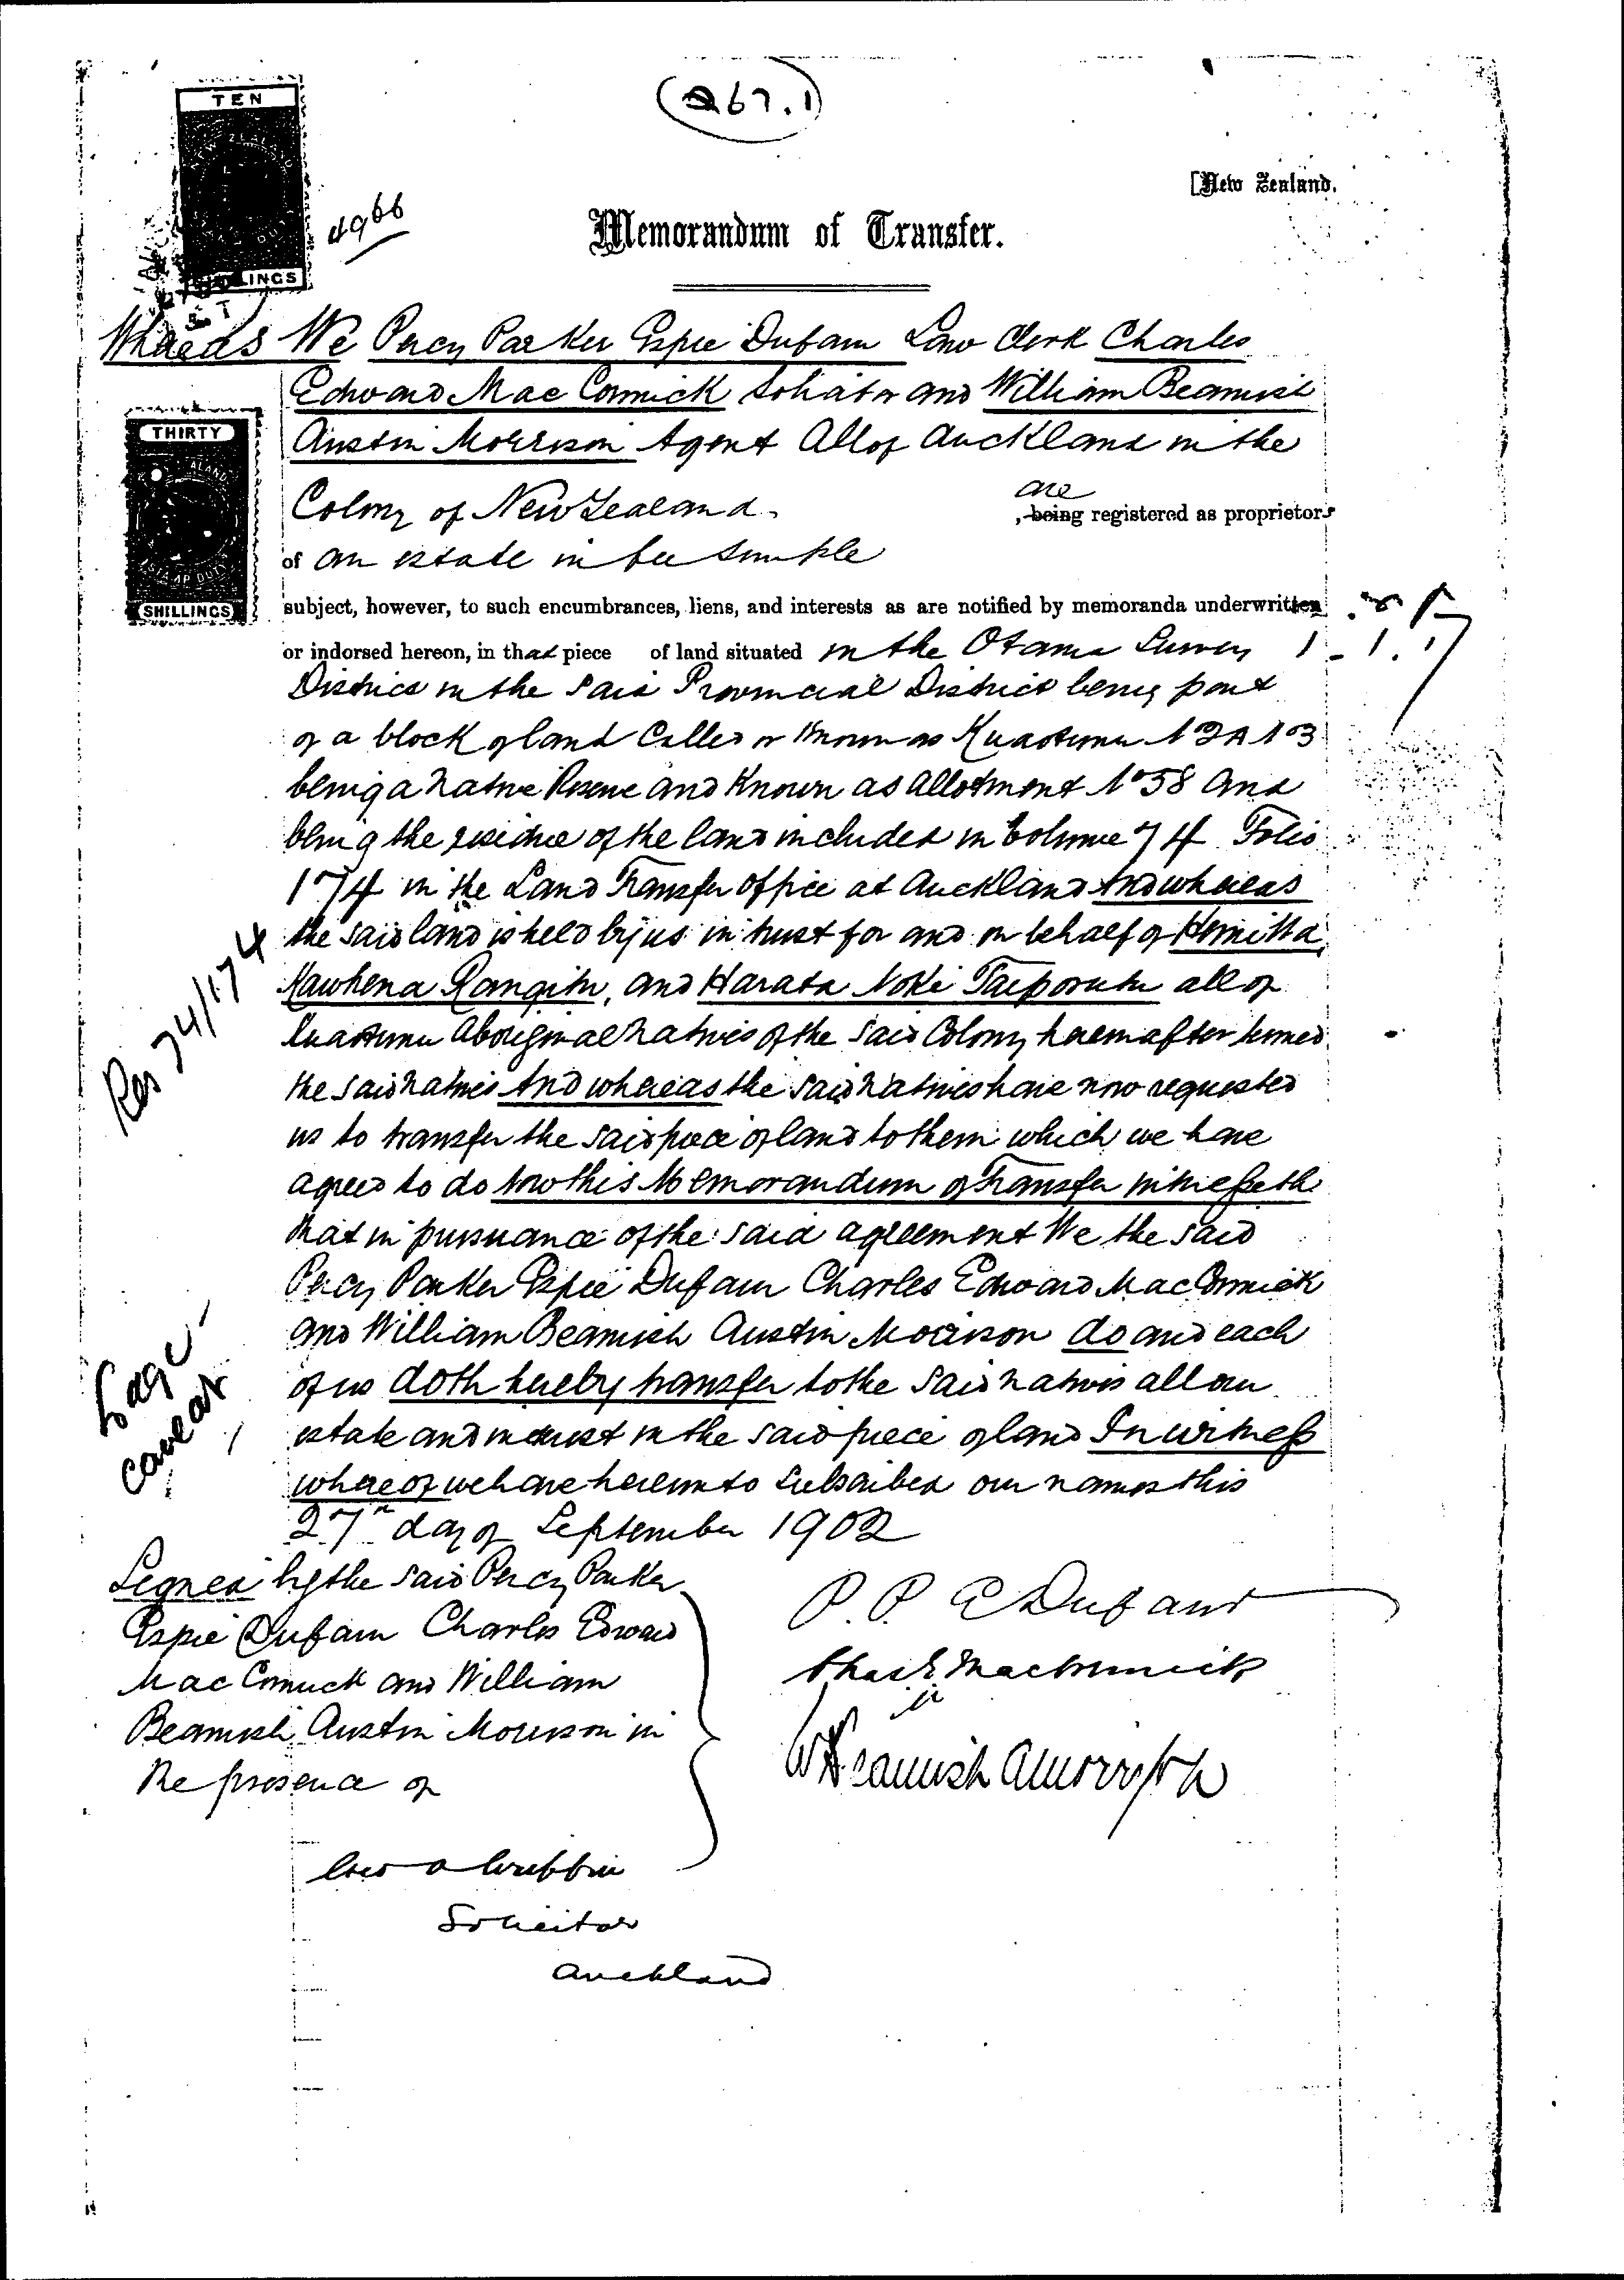 (267.1)
TEN
[New Zealand.
4966
Memorandum of Transfer.
SHILLINGS
Whereas We Percy Parker Espie Dufaur Law Clerk Charles
Edward Mac Cormick Solicitor and William Beamish
THIRTY
Austin Morrison Agent All of Auckland in the
Colony of New Zealand.
are
, being registered as proprietors
of an estate in fee simple
STAMP DUTY
SHILLINGS
subject, however, to such encumbrances, liens, and interests as are notified by memoranda underwritten
or indorsed hereon, in that piece of land situated in the Otama Survey 1 - 1 . 17
District in the said Provincial District being part
of a block of land Called or Known as Kuaotunu No 2A No 3
being a Native Reserve and Known as Allotment No 58 and
being the residue of the land included in Volume 74 Folio
174 in the Land Transfer Office at Auckland And whereas
the said land is held by us in trust for and on behalf of
Rangitu, and Harata Noki all of
Kuaotunu Aboriginal Natives of the said Colony hereinafter termed
the said natives And whereas the said Natives have now requested
us to transfer the said piece of land to them which we have
agreed to do Now this Memorandum of Transfer witnesseth
that in pursuance of the said agreement We the said
Percy Parker Espie Dufaur Charles Edward Mac Cormick
and William Beamish Austin Morrison do and each
of us doth hereby transfer to the said natives all our
estate and interest in the said piece of land In witness
whereof we have hereunto subscribed our names this
27th day of September 1902
Res 74/174
caveat
Signed by the said Percy Parker
Espie Dufaur Charles Edward
Mac Cormick and William
Beamish Austin Morrison in
the presence of
P. P. E Dufaur
Chas E. MacCormick
W Beamish A Morrison
Solicitor
Auckland